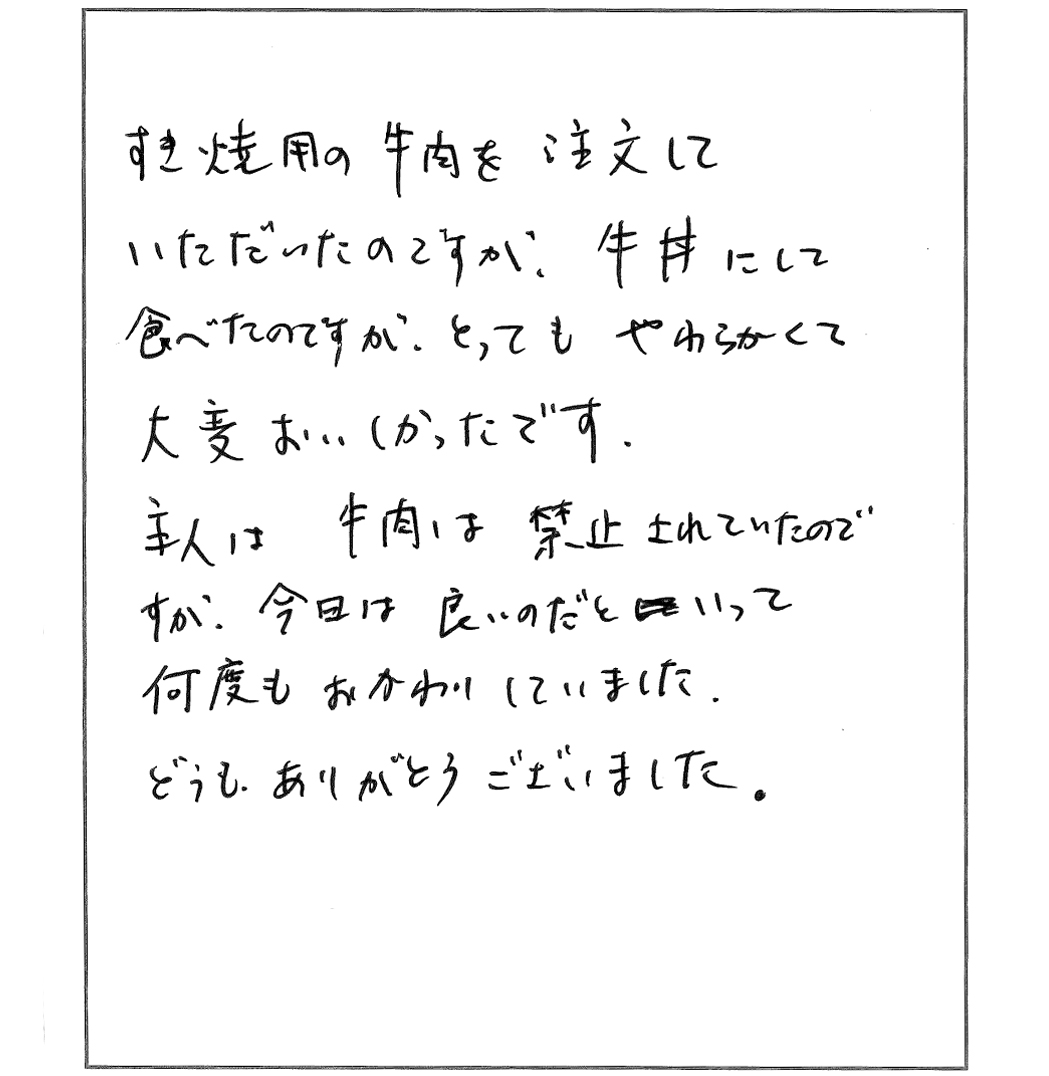 すき焼用の牛肉を注文して
いただいたのですが、牛丼にして
食べたのですが、とっても やわらかくて
大変おいしかったです.
主人は 牛肉は 禁止されていたので
すが、今日は 良いのだと いって
何度も おかわりしていました.
どうも ありがとう ございました。